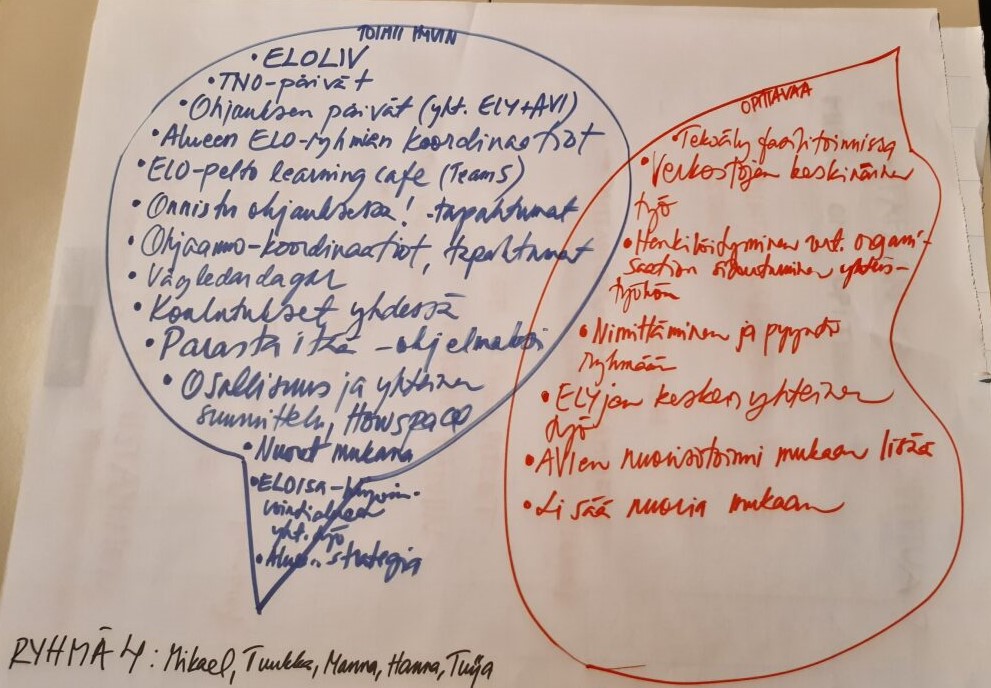 TOIMII HYVIN
• ELOLIV
• TNO-päivät
• Ohjauksen päivät (yht. ELY+AVI)
• Alueen ELO-ryhmien koordinaatiot
• ELO-pelto learning cafe (Teams)
• Onnistu ohjauksessa! -tapahtumat
• Ohjaamo-koordinaatiot, tapahtumat
• Vägledardagar
• Koulutukset yhdessä
• Parasta itää -ohjelmaksi
• Osallisuus ja yhteinen
suunnittelu, Howspace
• Nuoret mukana
• ELOISA-hyvin-
vointialueen
yht. työ
• Alue.. strategia
OPITTAVAA
• Tekoäly fasilitoinnissa
• Verkostojen keskinäinen
työ
• Henkilöityminen vrt. organi-
saation sitoutuminen yhteis-
työhön
• Nimittäminen ja pyyntö
ryhmään
• ELYjen kesken yhteinen
työ
• AVIen nuorisotoimi mukaan lisää
• Lisää nuoria mukaan
RYHMÄ 4: Mikael, Tuukka, Manna, Hanna, Tuija